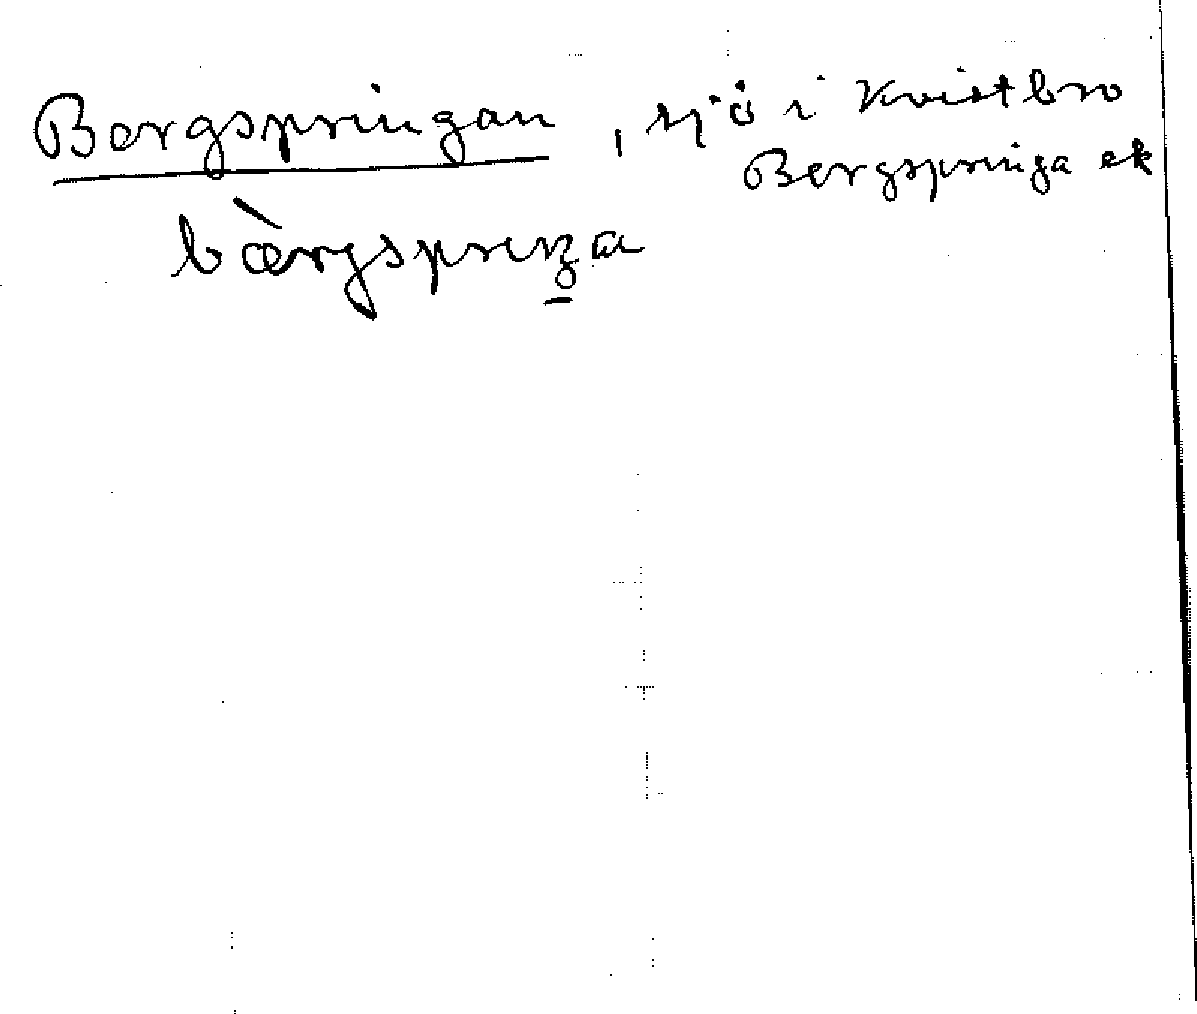 Bergspringan, sjö i Kvistbro
Bergspringa ek
bæ̀rgspriŋa